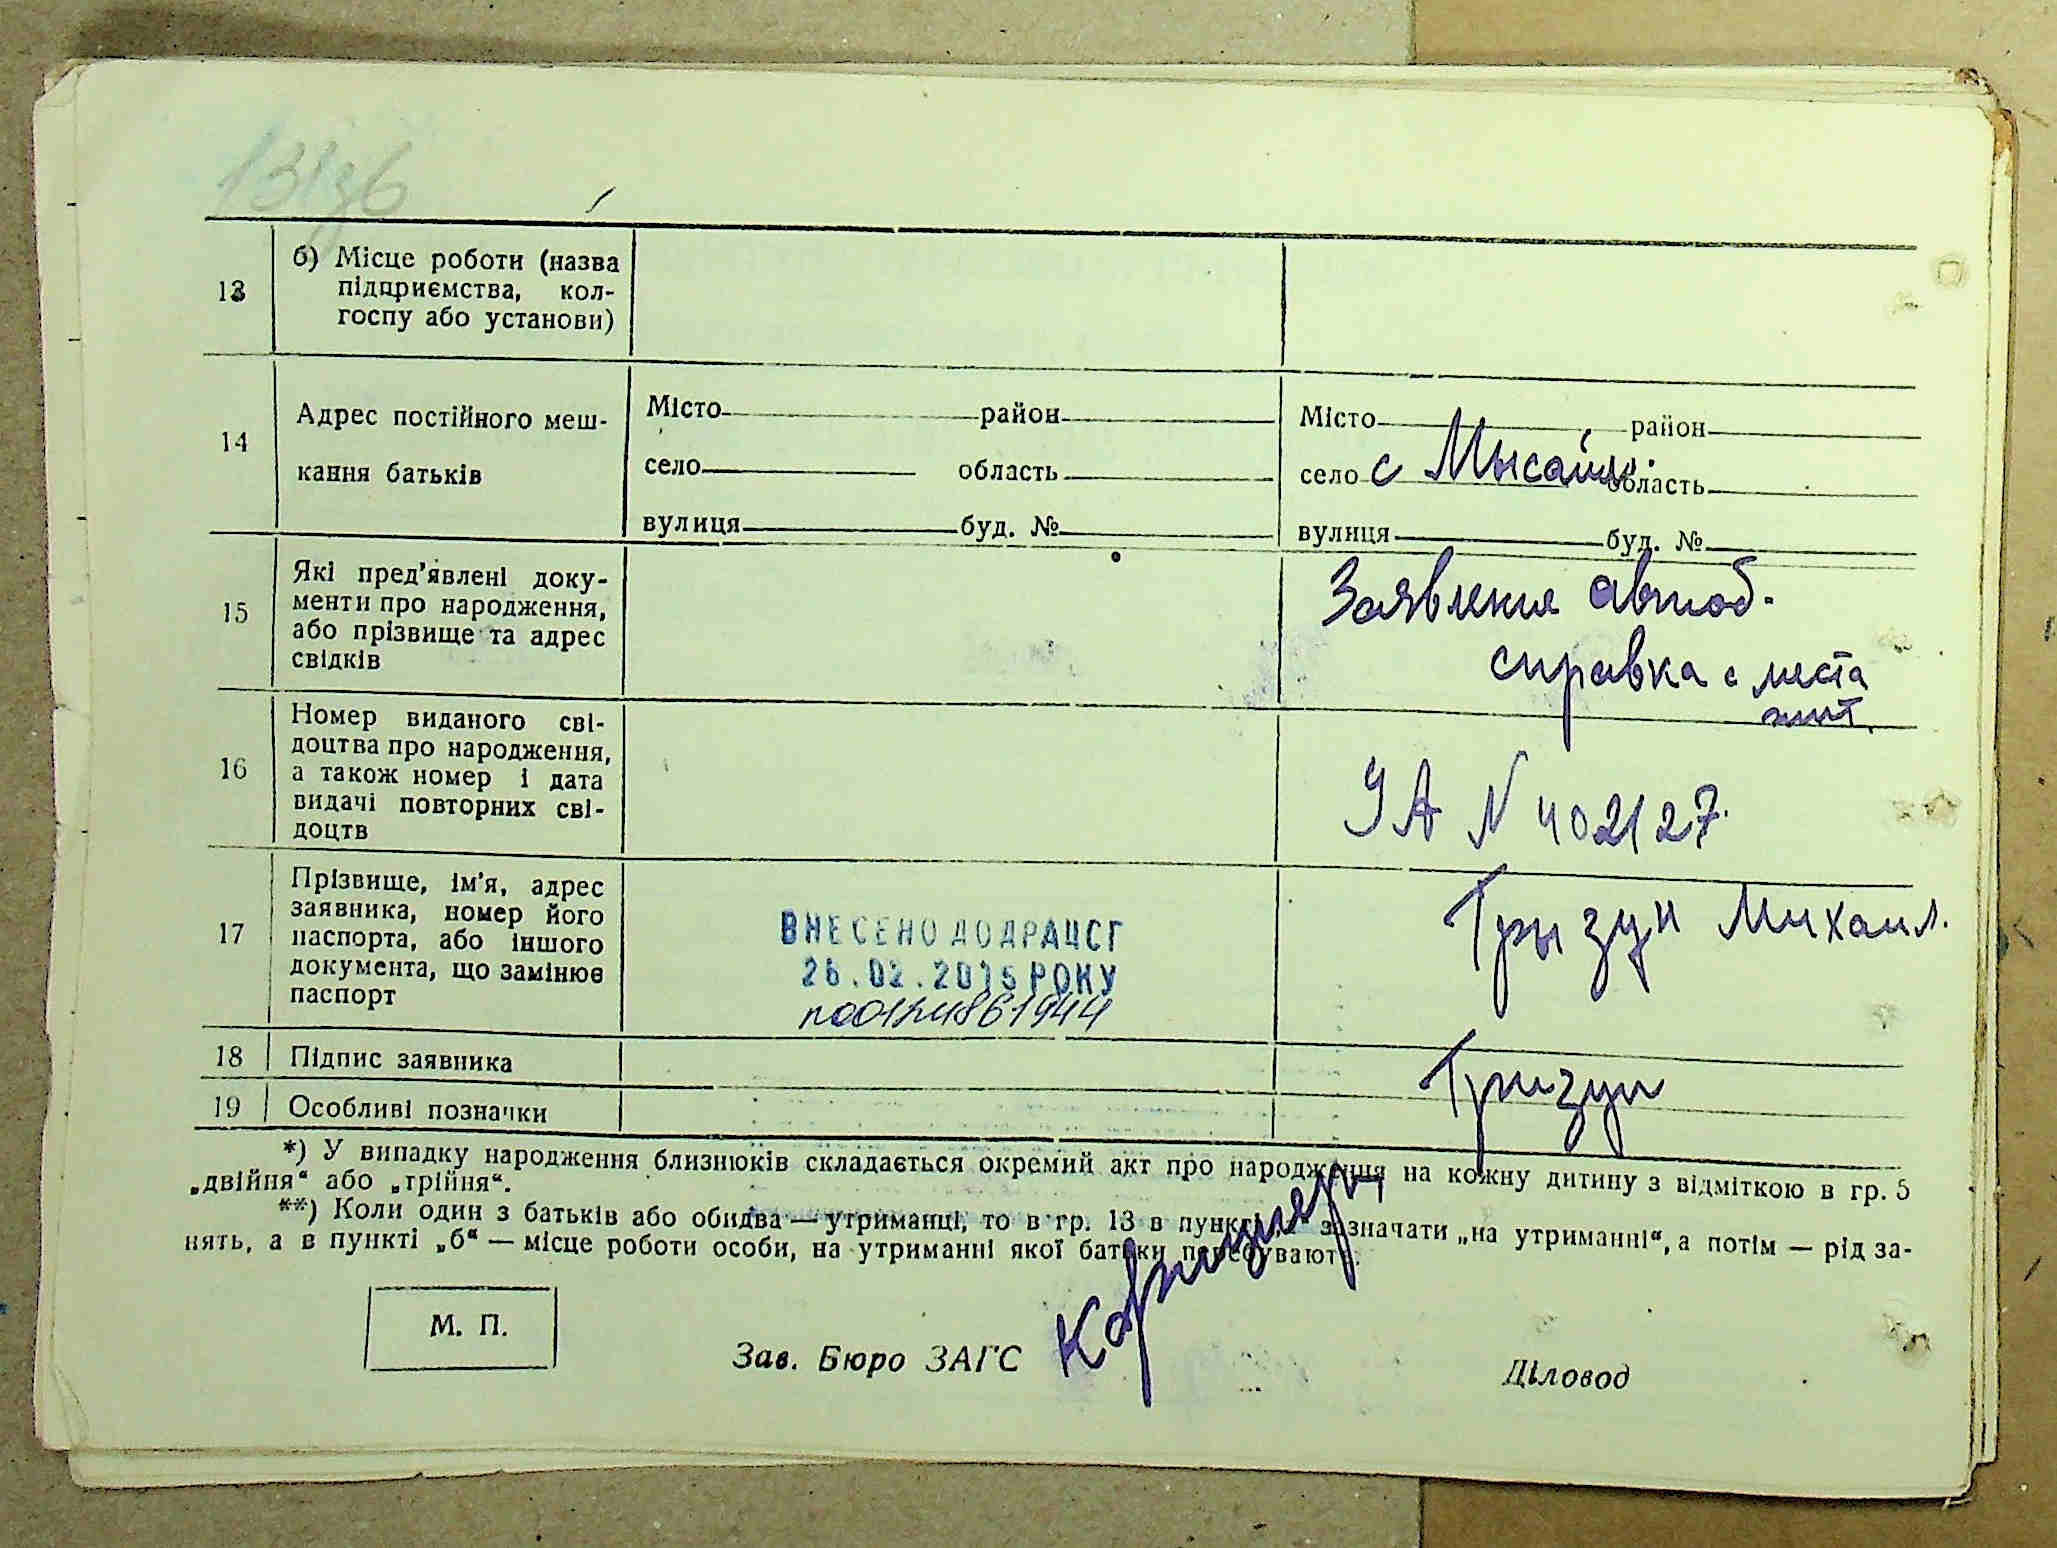 131зв
13
б) Місце роботи (назва
підприємства, кол-
госпу або установи)
14
Адрес постійного меш-
кання батьків
Місто район
село область
вулиця буд. №
Місто район
село с Мысайл. область
вулиця буд. №
15
Які пред'явлені доку-
менти про народження,
або прізвище та адрес
свідків
Заявления
справка с места
жит.
16
Номер виданого сві-
доцтва про народження,
а також номер і дата
видачі повторних сві-
доцтв
УА N 402127.
17
Прізвище, ім'я, адрес
заявника, номер його
паспорта, або іншого
документа, що замінює
паспорт
ВНЕСЕНО ДО ДРАЦСГ
26.02.2015 РОКУ
Грызун Михаил.
18
Підпис заявника
Гризун
19
Особливі позначки
*) У випадку народження близнюків складається окремий акт про народження на кожну дитину з відміткою в гр. 5
„двійня“ або „трійня“.
**) Коли один з батьків або обидва — утриманці, то в гр. 13 в пункті „а“ зазначати „на утриманні“, а потім — рід за-
нять, а в пункті „б“ — місце роботи особи, на утриманні якої батьки перебувають.
М. П.
Зав. Бюро ЗАГС
Діловод